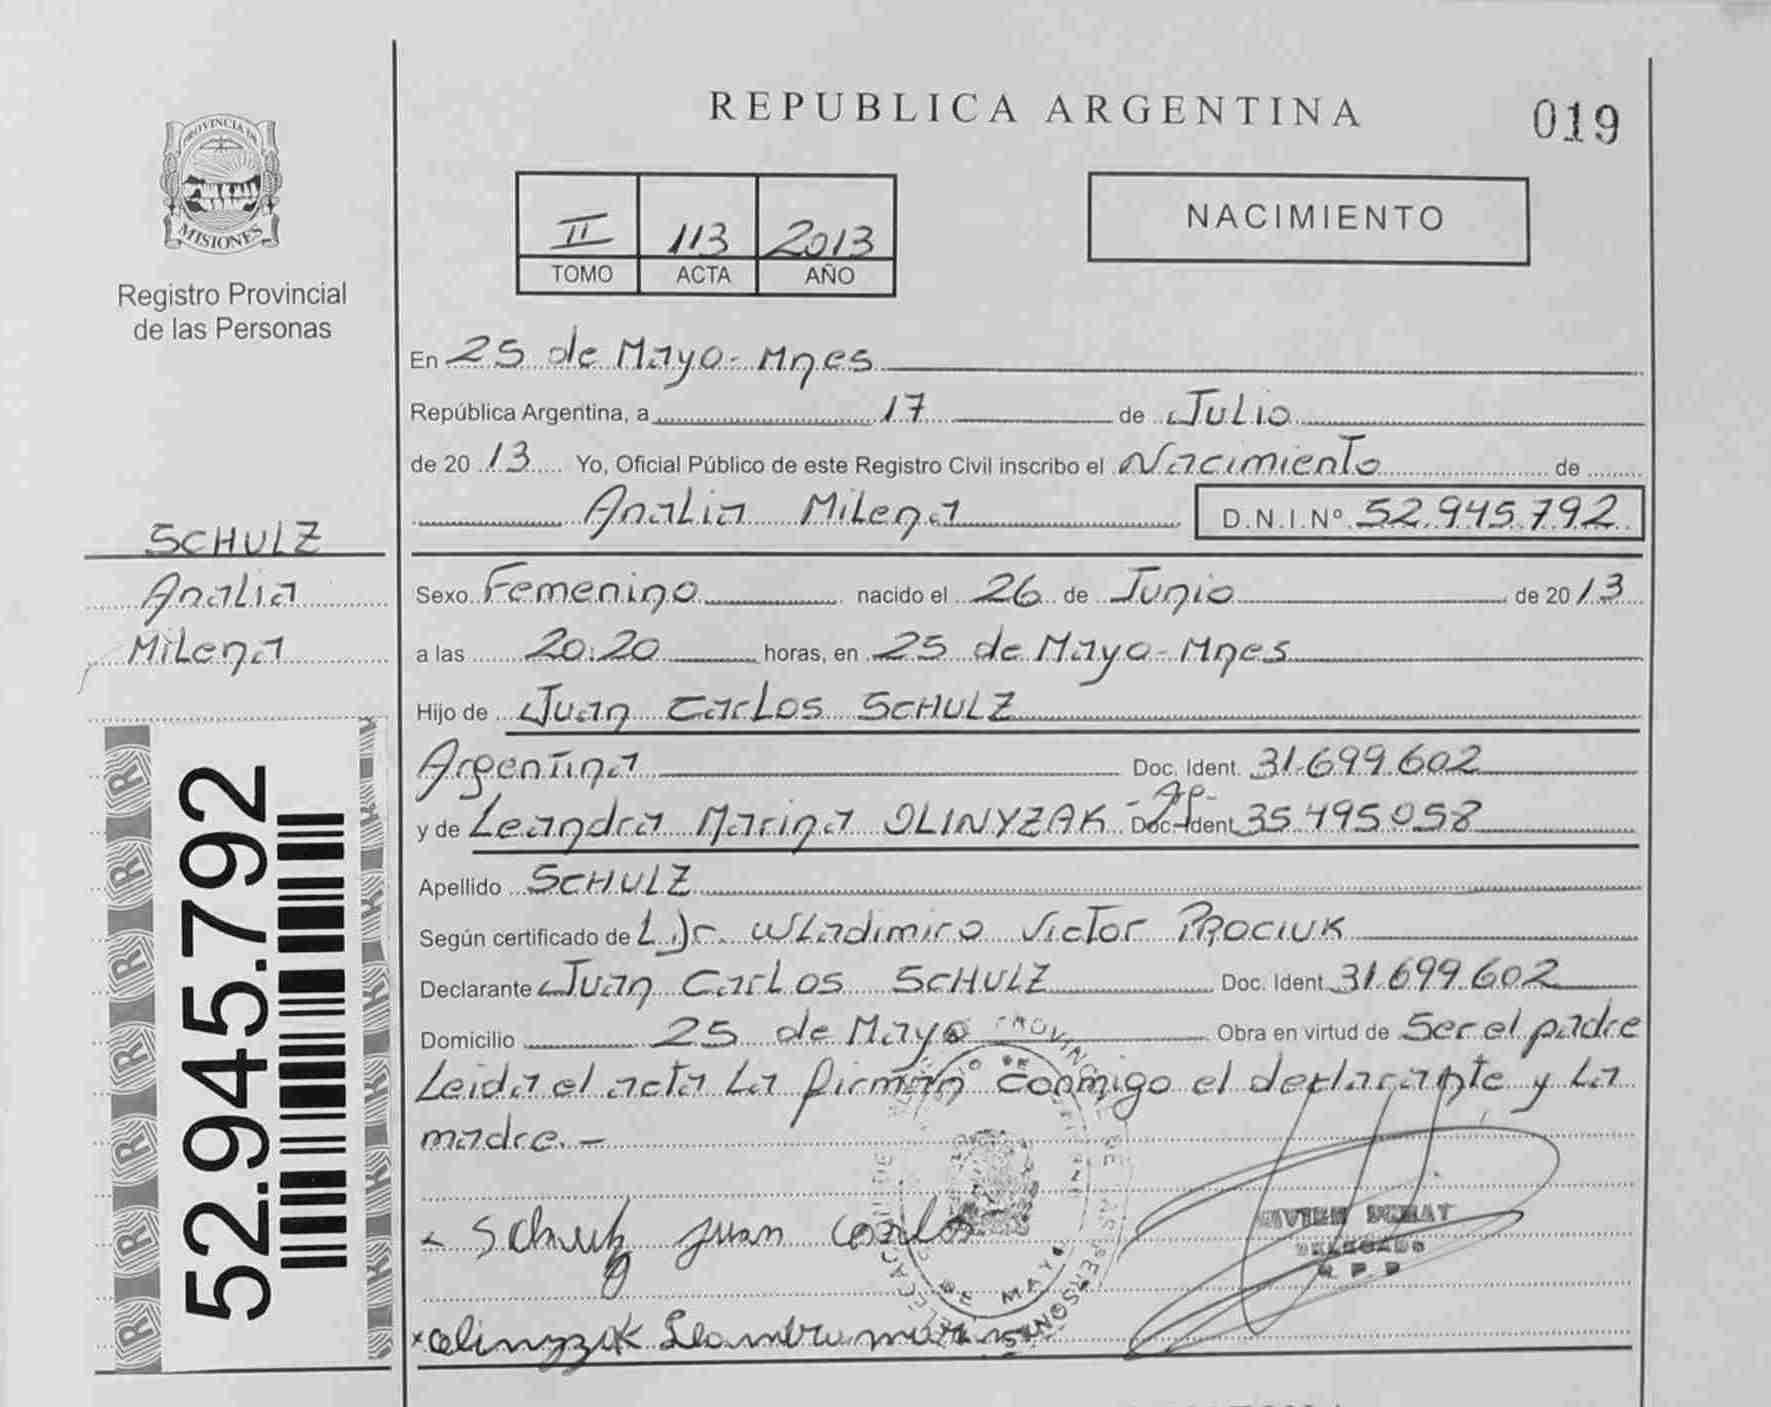 REPUBLICA ARGENTINA
019
PROVINCIA DE
MISIONES
Registro Provincial
de las Personas
II 113 2013
TOMO ACTA AÑO
NACIMIENTO
En 25 de Mayo-Mnes
República Argentina, a 17 de Julio
de 2013 Yo, Oficial Público de este Registro Civil inscribo el Nacimiento de
Analia Milena D.N.I.Nº 52.945.792
SCHULZ
Analia
Milena
Sexo Femenino nacido el 26 de Junio de 2013
a las 20:20 horas, en 25 de Mayo-Mnes
Hijo de Juan Carlos SCHULZ
Argentina Doc. Ident. 31.699.602
y de Leandra Marina OLINYZAK -Ap- Doc-Ident 35.495.058
Apellido SCHULZ
Según certificado de L Dr. Wladimiro Victor PROCIUK
Declarante Juan Carlos SCHULZ Doc. Ident. 31.699.602
Domicilio 25 de Mayo Obra en virtud de Ser el padre
Leida el acta La firman conmigo el declarante y La
madre.-
Schulz juan carlos
DELEGADO
R P P
olinyzak Leandra
52.945.792